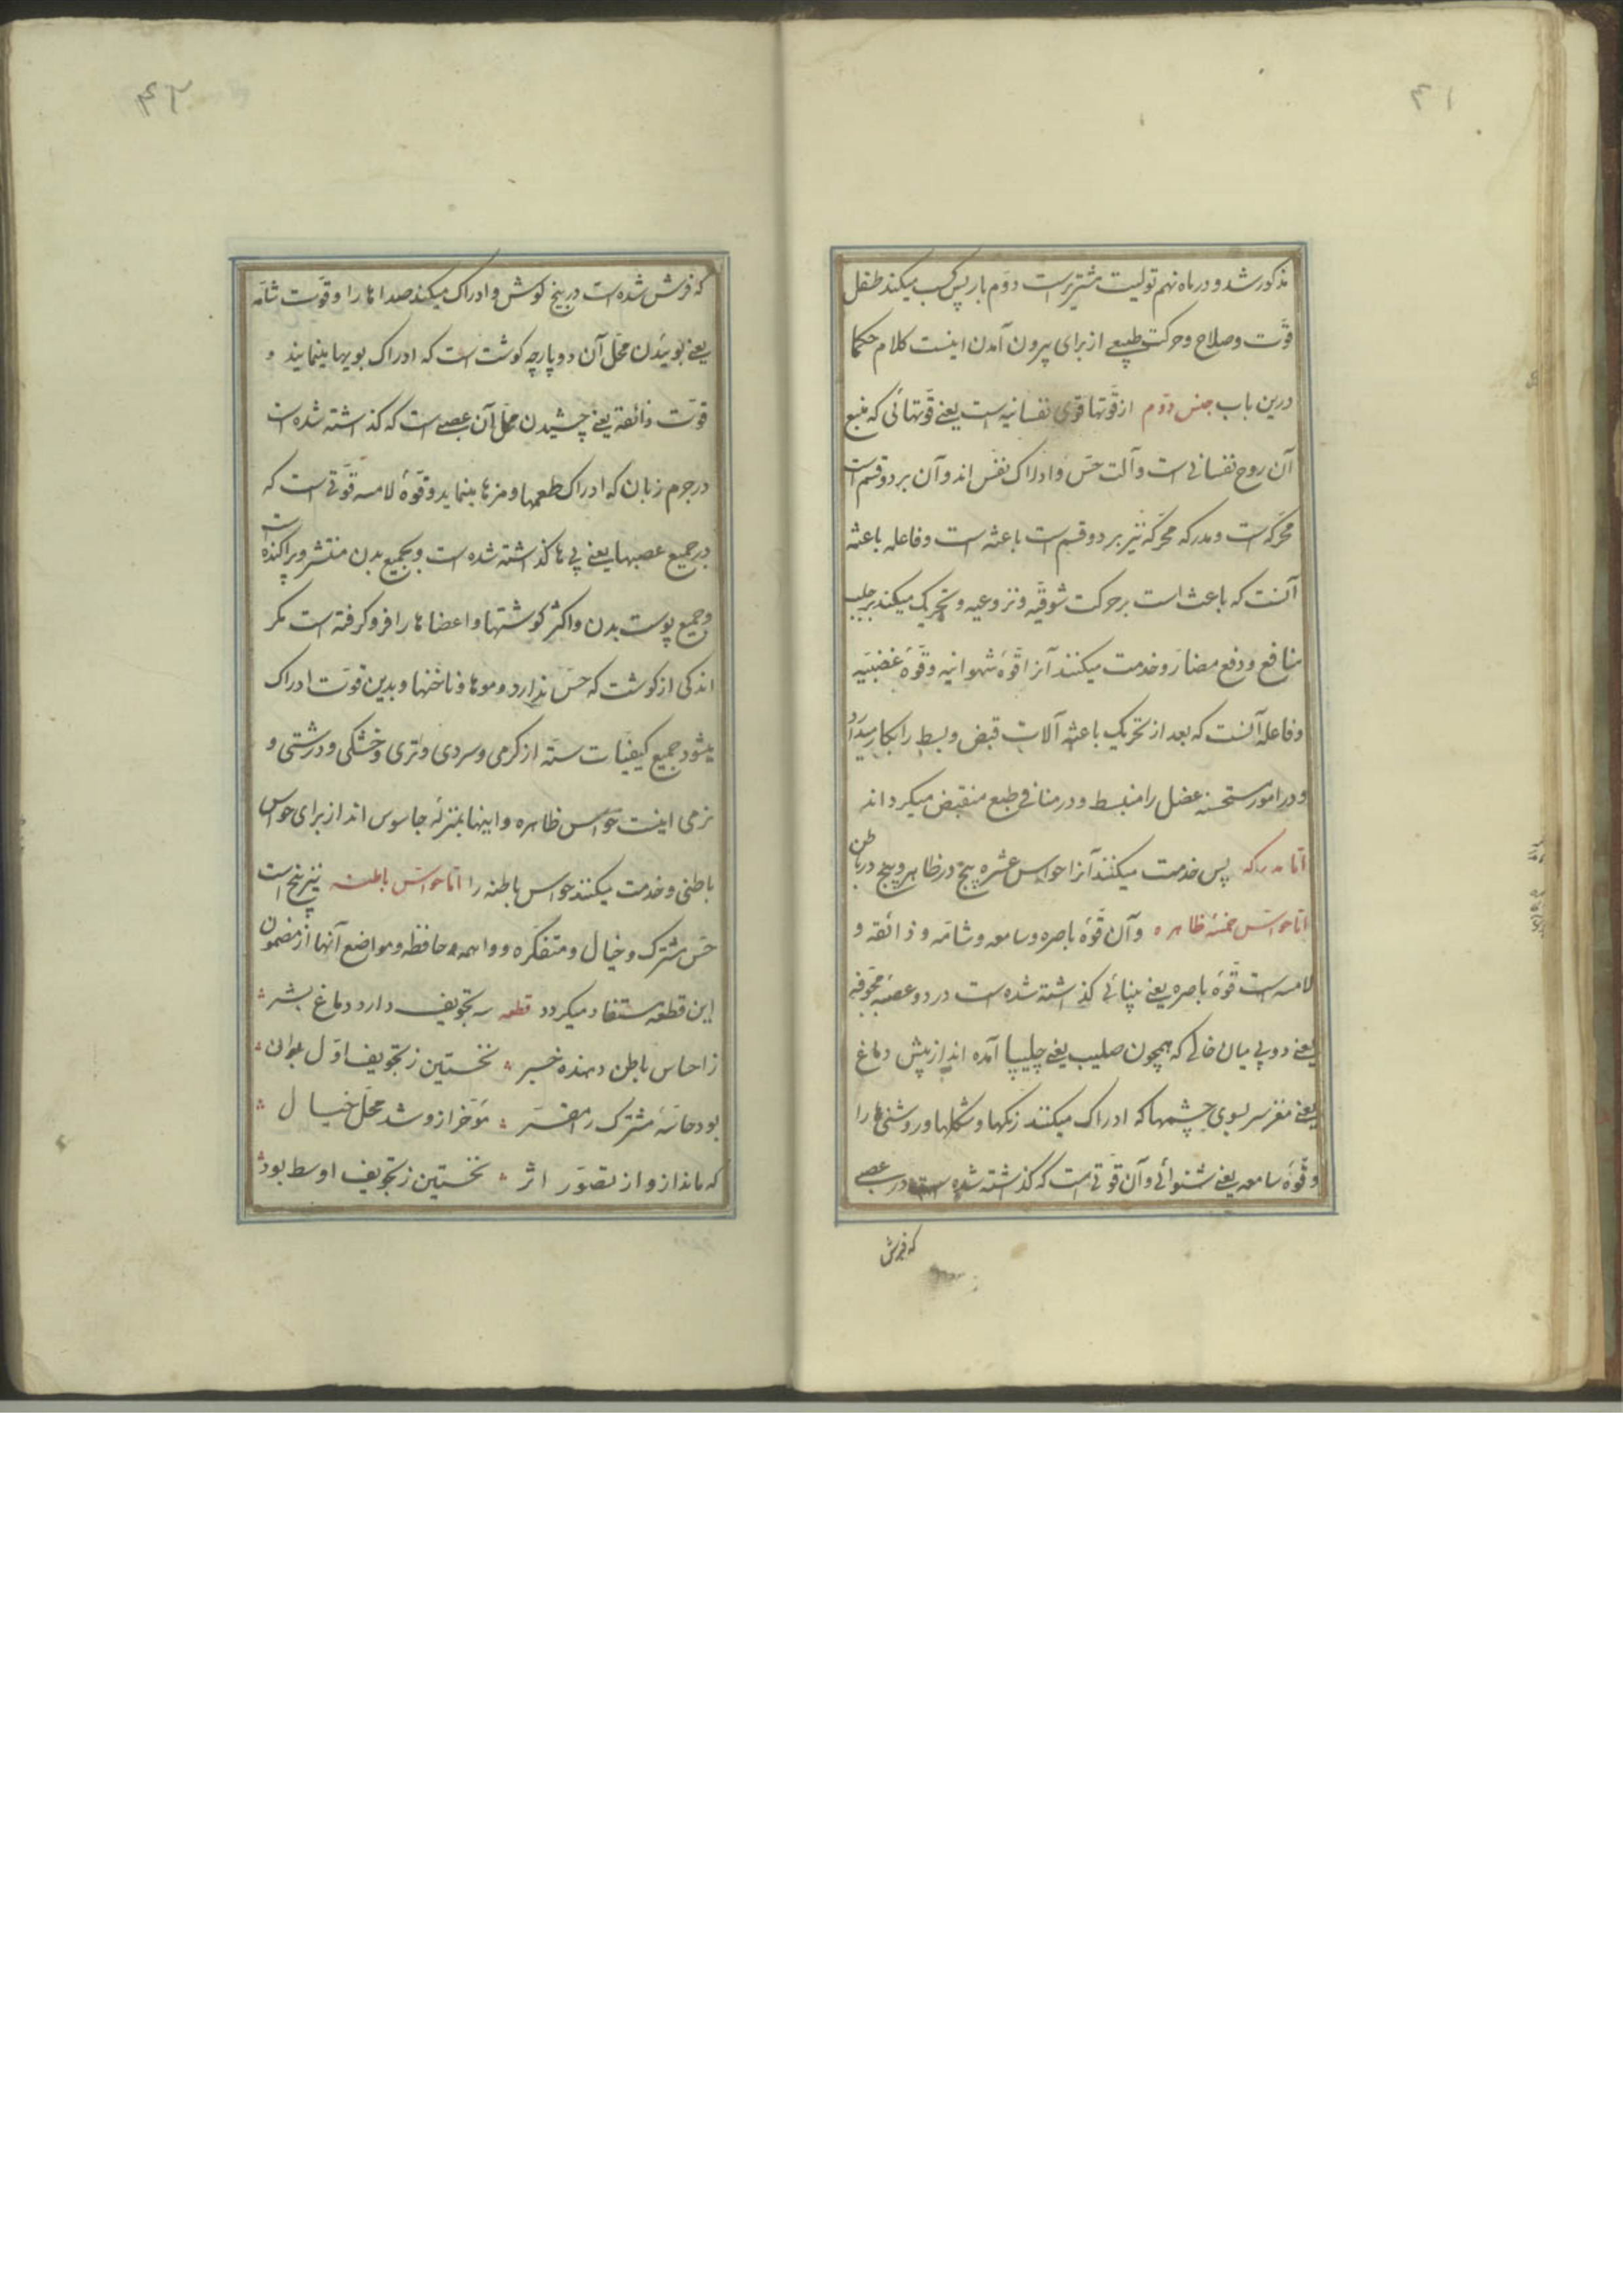 ۴۱
مذکور شد و در ماه نهم تولیت مشتریراست دوّم بار پس کسب میکند طفل
قوّت و صلاح و حرکت طبیعے از برای بیرون آمدن اینست کلام حکما
درین باب جنس دوّم از قوّتها قوی نفسانیه است یعنے قوّتهائی که منبع
آن روح نفسانی است و آلت حسّ و ادراک نفس اند و آن بر دو قسم است
محرّکه است و مدرکه محرّکه نیز بر دو قسم است باعثه است و فاعله باعثه
آنست که باعث است بر حرکت شوقیّه و نزوعیه و تحریک میکند بر جلب
منافع و دفع مضارّ و خدمت میکنند آنرا قوّهٔ شهوانیه و قوّهٔ غضبیّه
و فاعله آنست که بعد از تحریک باعثه آلات قبض و بسط را بکار میدارد
و در امور مستحسنه عضل را منبسط و در منافی طبع منقبض میکرداند
امّا مدرکه پس خدمت میکنند آنرا حواس عشره پنج در ظاهر و پنج در باطن
امّا حواسّ خمسهٔ ظاهره و آن قوّهٔ باصره و سامعه و شامّه و ذائقه و
لامسه است قوّهٔ باصره یعنے بینائی کذاشته شده است در دو عصبهٔ مجوّفه
یعنے دو پی میان خالی که همچون صلیب یعنے چلیپا آمده اند از پیش دماغ
یعنے مغز سر بسوی چشمها که ادراک میکنند رنکها و شکلها و روشنی‌ها را
و قوّهٔ سامعه یعنے شنوائی و آن قوّتی است که کذاشته شده است در عصبے
که فرش
۴۲
که فرش شده است در بیخ کوش و ادراک میکند صداها را و قوّت شامّه
یعنے بوئیدن محلّ آن دو پارچه کوشت است که ادراک بویها مینمایند و
قوّت ذائقه یعنے چشیدن محلّ آن عصبے است که کذاشته شده است
در جرم زبان که ادراک طعمها و مزها مینماید و قوّهٔ لامسه قوّتی است که
در جمیع عصبها یعنے پی‌ها کذاشته شده است و بجمیع بدن منتشر و پراکنده است
و جمیع پوست بدن و اکثر کوشتها و اعضاها را فرو کرفته است مکر
اندکی از کوشت که حسّ ندارد و موها و ناخنها و بدین قوّت ادراک
میشود جمیع کیفیّات ستّه از کرمی و سردی و تری و خشکی و درشتی و
نرمی اینست حواس ظاهره و اینها بمنزلهٔ جاسوس اند از برای حواس
باطنی و خدمت میکنند حواس باطنه را امّا حواسّ باطنه نیز پنج است
حسّ مشترک و خیال و متفکّره و واهمه و حافظه و مواضع آنها از مضمون
این قطعه مستفاد میکردد قطعه سه تجویف دارد دماغ بشر
ز احساس باطن دهنده خبر نخستین ز تجویف اوّل بدان
بود حاسّهٔ مشترک را مقرّ مؤخّر ازو شد محلّ خیال
که ماند ازو از تصوّر اثر نخستین ز تجویف اوسط بود